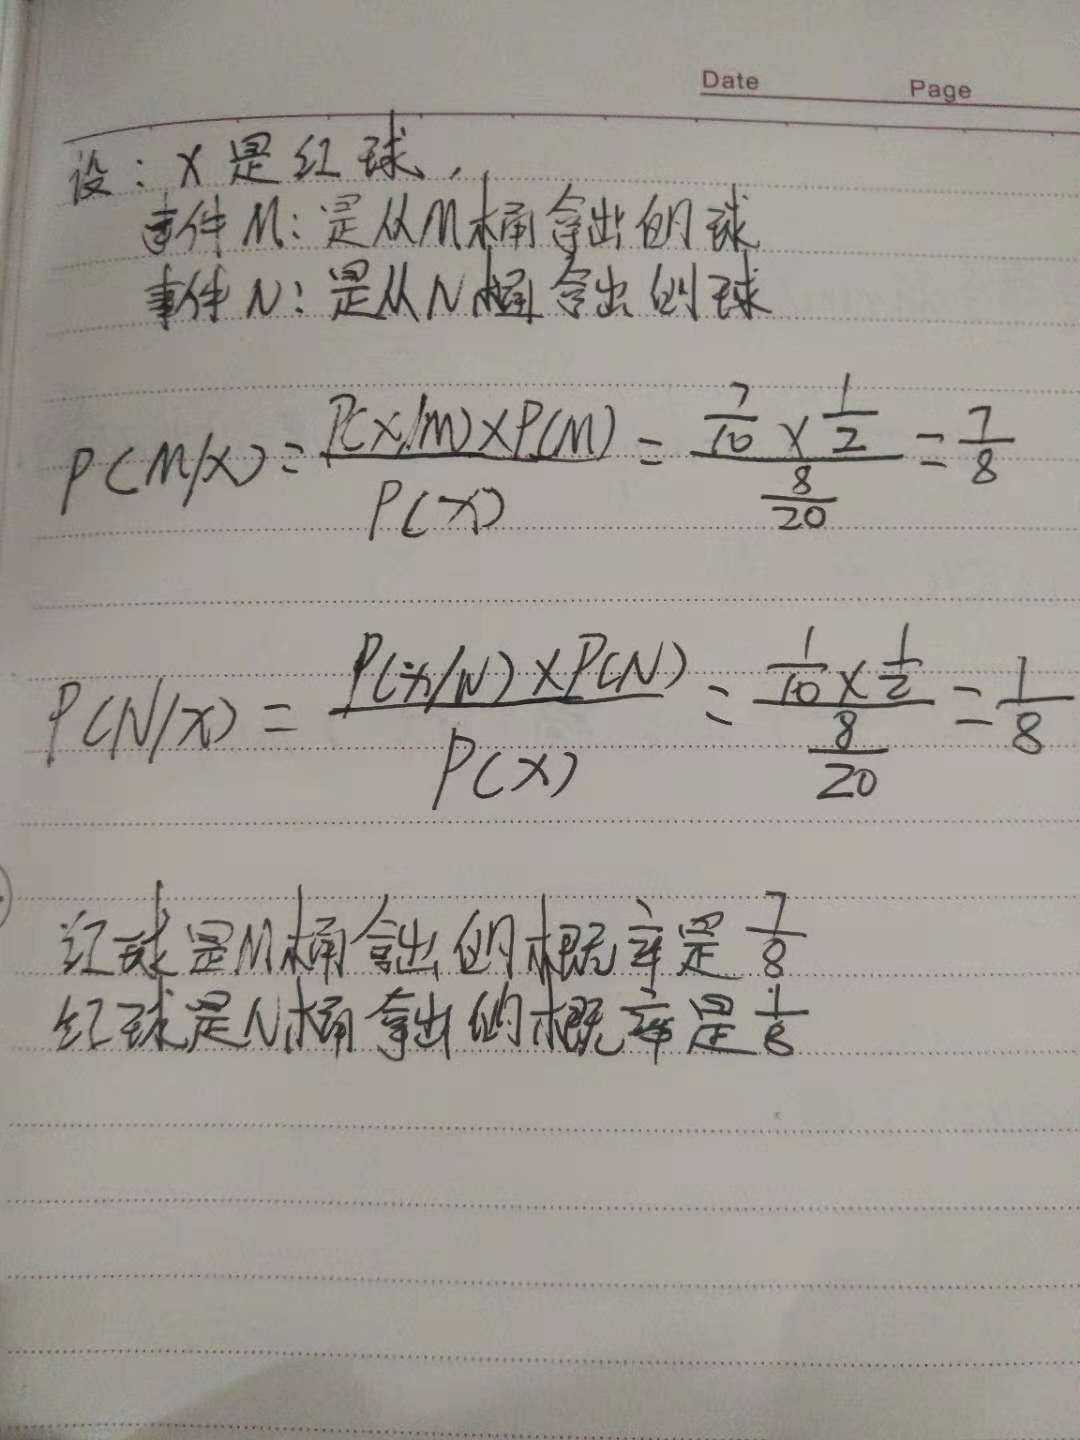 Date Page
设：X是红球，
事件M：是从M桶拿出的球
事件N：是从N桶拿出的球
P(M/X)=P(X/M)×P(M)/P(X)=7/10×1/2/8/20=7/8
P(N/X)=P(X/N)×P(N)/P(X)=1/10×1/2/8/20=1/8
红球是M桶拿出的概率是7/8
红球是N桶拿出的概率是1/8